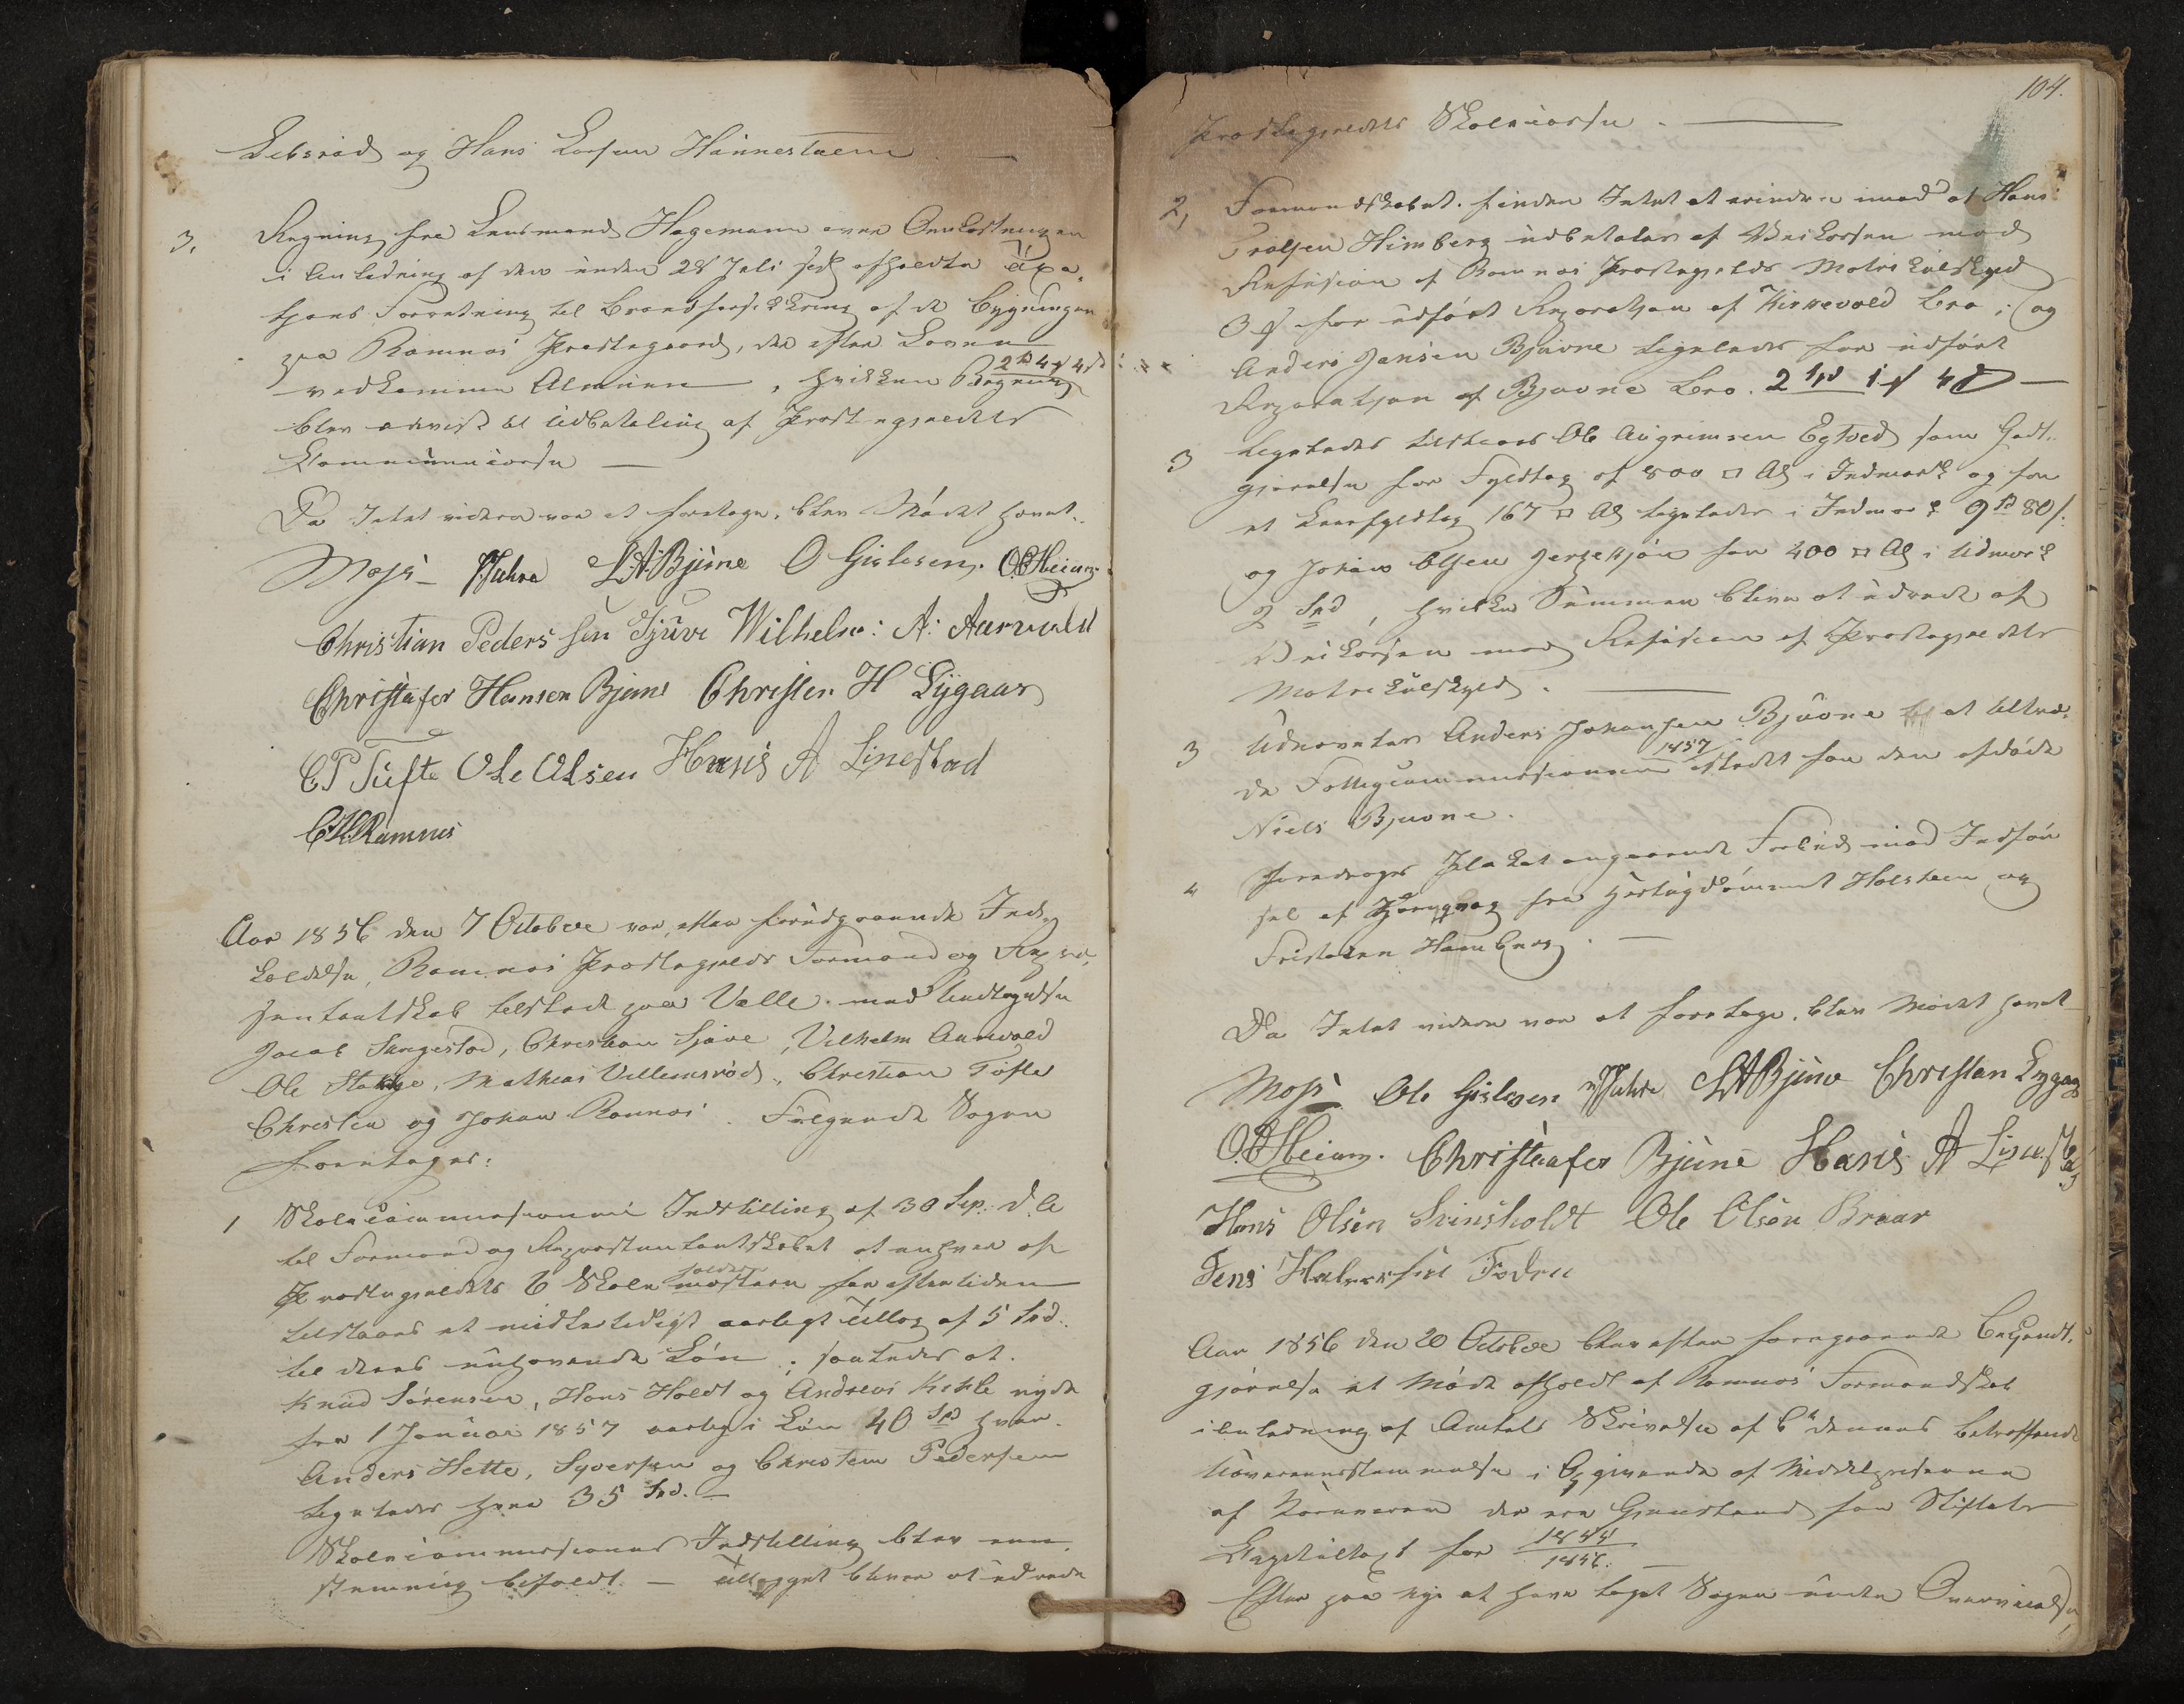 Lebsrød og Hans Larsen Hannestuen. —
3. Regning fra Lensmand Hagemann over Omkostningen
i Anledning af den under 28 Juli sidst afholdte Taxa-
tions Forretning til Brandforsikkring af de Bygninger
paa Ramnæs Præstegaard, der efter Loven
vedkomme Almuen, hvilken Regning 2 4 4
blev anvist til Udbetaling af Præstegjeldets
Kommunecasse —
Da Intet videre var at foretage, blev Mødet hævet.
Moss Fuhre L.A. Bjune O Gislesen. O.B. Heian
Christian Pederssen Tjuve Wilhelm: A: Aurvald
Christafer Hansen Bjune Christen H Lygaar
C.P Tufte Ole Olsen Hans A Linestad
C.H. Ramnes
Aar 1856 den 7 October var, efter forudgaaende Ind-
kaldelse, Ramnæs Præstegjelds Formand og Repræ-
sentantskab tilstede paa Valle med Undtagelse
Jacob Sangestad, Christian Tjuve, Vilhelm Aurvald
Ole Stange, Mathias Villemsrød, Christian Tufte
Christen og Johan Ramnæs. Følgende Sager
foretages:
1 Skolecommissionens Indstilling af 30 Sep. d. A
til Formand og Repræsentantskabet at enhver af
Præstegjeldets 6 Skoleholdere for eftertiden
tilstaaes et midlertidigt aarligt Tillæg af 5 Spd.
til deres nuhavende Løn; saaledes at
Knud Sørensen, Hans Holdt og Andreas Kihle nyde
fra 1 Januar 1857 aarlig i Løn 40 Spd hver.
Anders Hette, Syversen og Christen Pedersen
ligeledes hver 35 Spd. —
Skolecommissionens Indstilling blev enn-
stemmig bifaldt. — Tillægget bliver at udrede
104.
Præstegjeldets Skolecasse. —
2, Formandskabet finder Intet at erindre imod at Hans
Trolsen Himberg udbetales af Veikassen mod
Refusion af Ramnæs Præstegjelds Matrikulskyld
3 for udført Reparation af Kirkevold Bro; og
Anders Jansen Bjuvne ligeledes for udført
Reparation af Bjuvne Bro. 2 Spd 1 4 —
3 Ligeledes tilstaaes Ole Augrimsen Egtved som Godt-
gjørelse for Fyldtag af 800 □ Al i Indmark og for
et Leerfyldtag 167 □ Al ligeledes i Indmark 9 80
og Johan Olsen for 400 □ Al i Udmark
2 Spd, hvilke Summer bliver at udrede af
Veikassen mod Refusion af Præstegjeldets
Matrikulskyld. —
3 Udnævntes Anders Johansen Bjuvne til at tiltræ-
de Fattigcommissionen 1857 istedet for den afdøde
Niels Bjuvne.
4 Foredroges Plakat angaaende Forbud mod Indfør-
sel af fra Hertugdømmet Holsteen og
Fristaden Hamburg. —
Da Intet videre var at foretage, blev Mødet hævet
Moss Ole Gislesen Fuhre L.A. Bjune Christen Lygaar
O.B. Heian. Christaafer Bjune Hans A Linestad
Hans Olsen Svinsholdt Ole Olsen Braar
Jens Halvorsen Foden
Aar 1856 den 20 October blev efter foregaaende Bekjendt-
gjørelse et Møde afholdt af Ramnæs Formandskab
i Anledning af Amtets Skrivelse af 6te dennes betreffende
Uoverensstemmelse i Opgivende af Middelpriserne
af Kornvarer der ere Gjenstand for Stiftets
Capitelstaxt for 1844
1856. —
Efter paa nye at have taget Sagen under Overveielse,